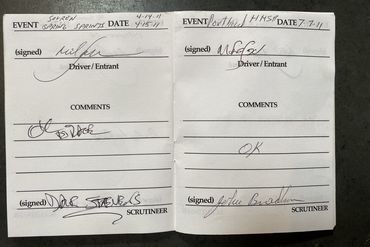 EVENT SPRING SPRINTS DATE 4-14-11
4-15-11
(signed)
Driver / Entrant
COMMENTS
OK TO RACE
(signed) DAVE STEVENS
SCRUTINEER
EVENT Portland HMSR DATE 7-7-11
(signed)
Driver / Entrant
COMMENTS
OK
(signed)
SCRUTINEER